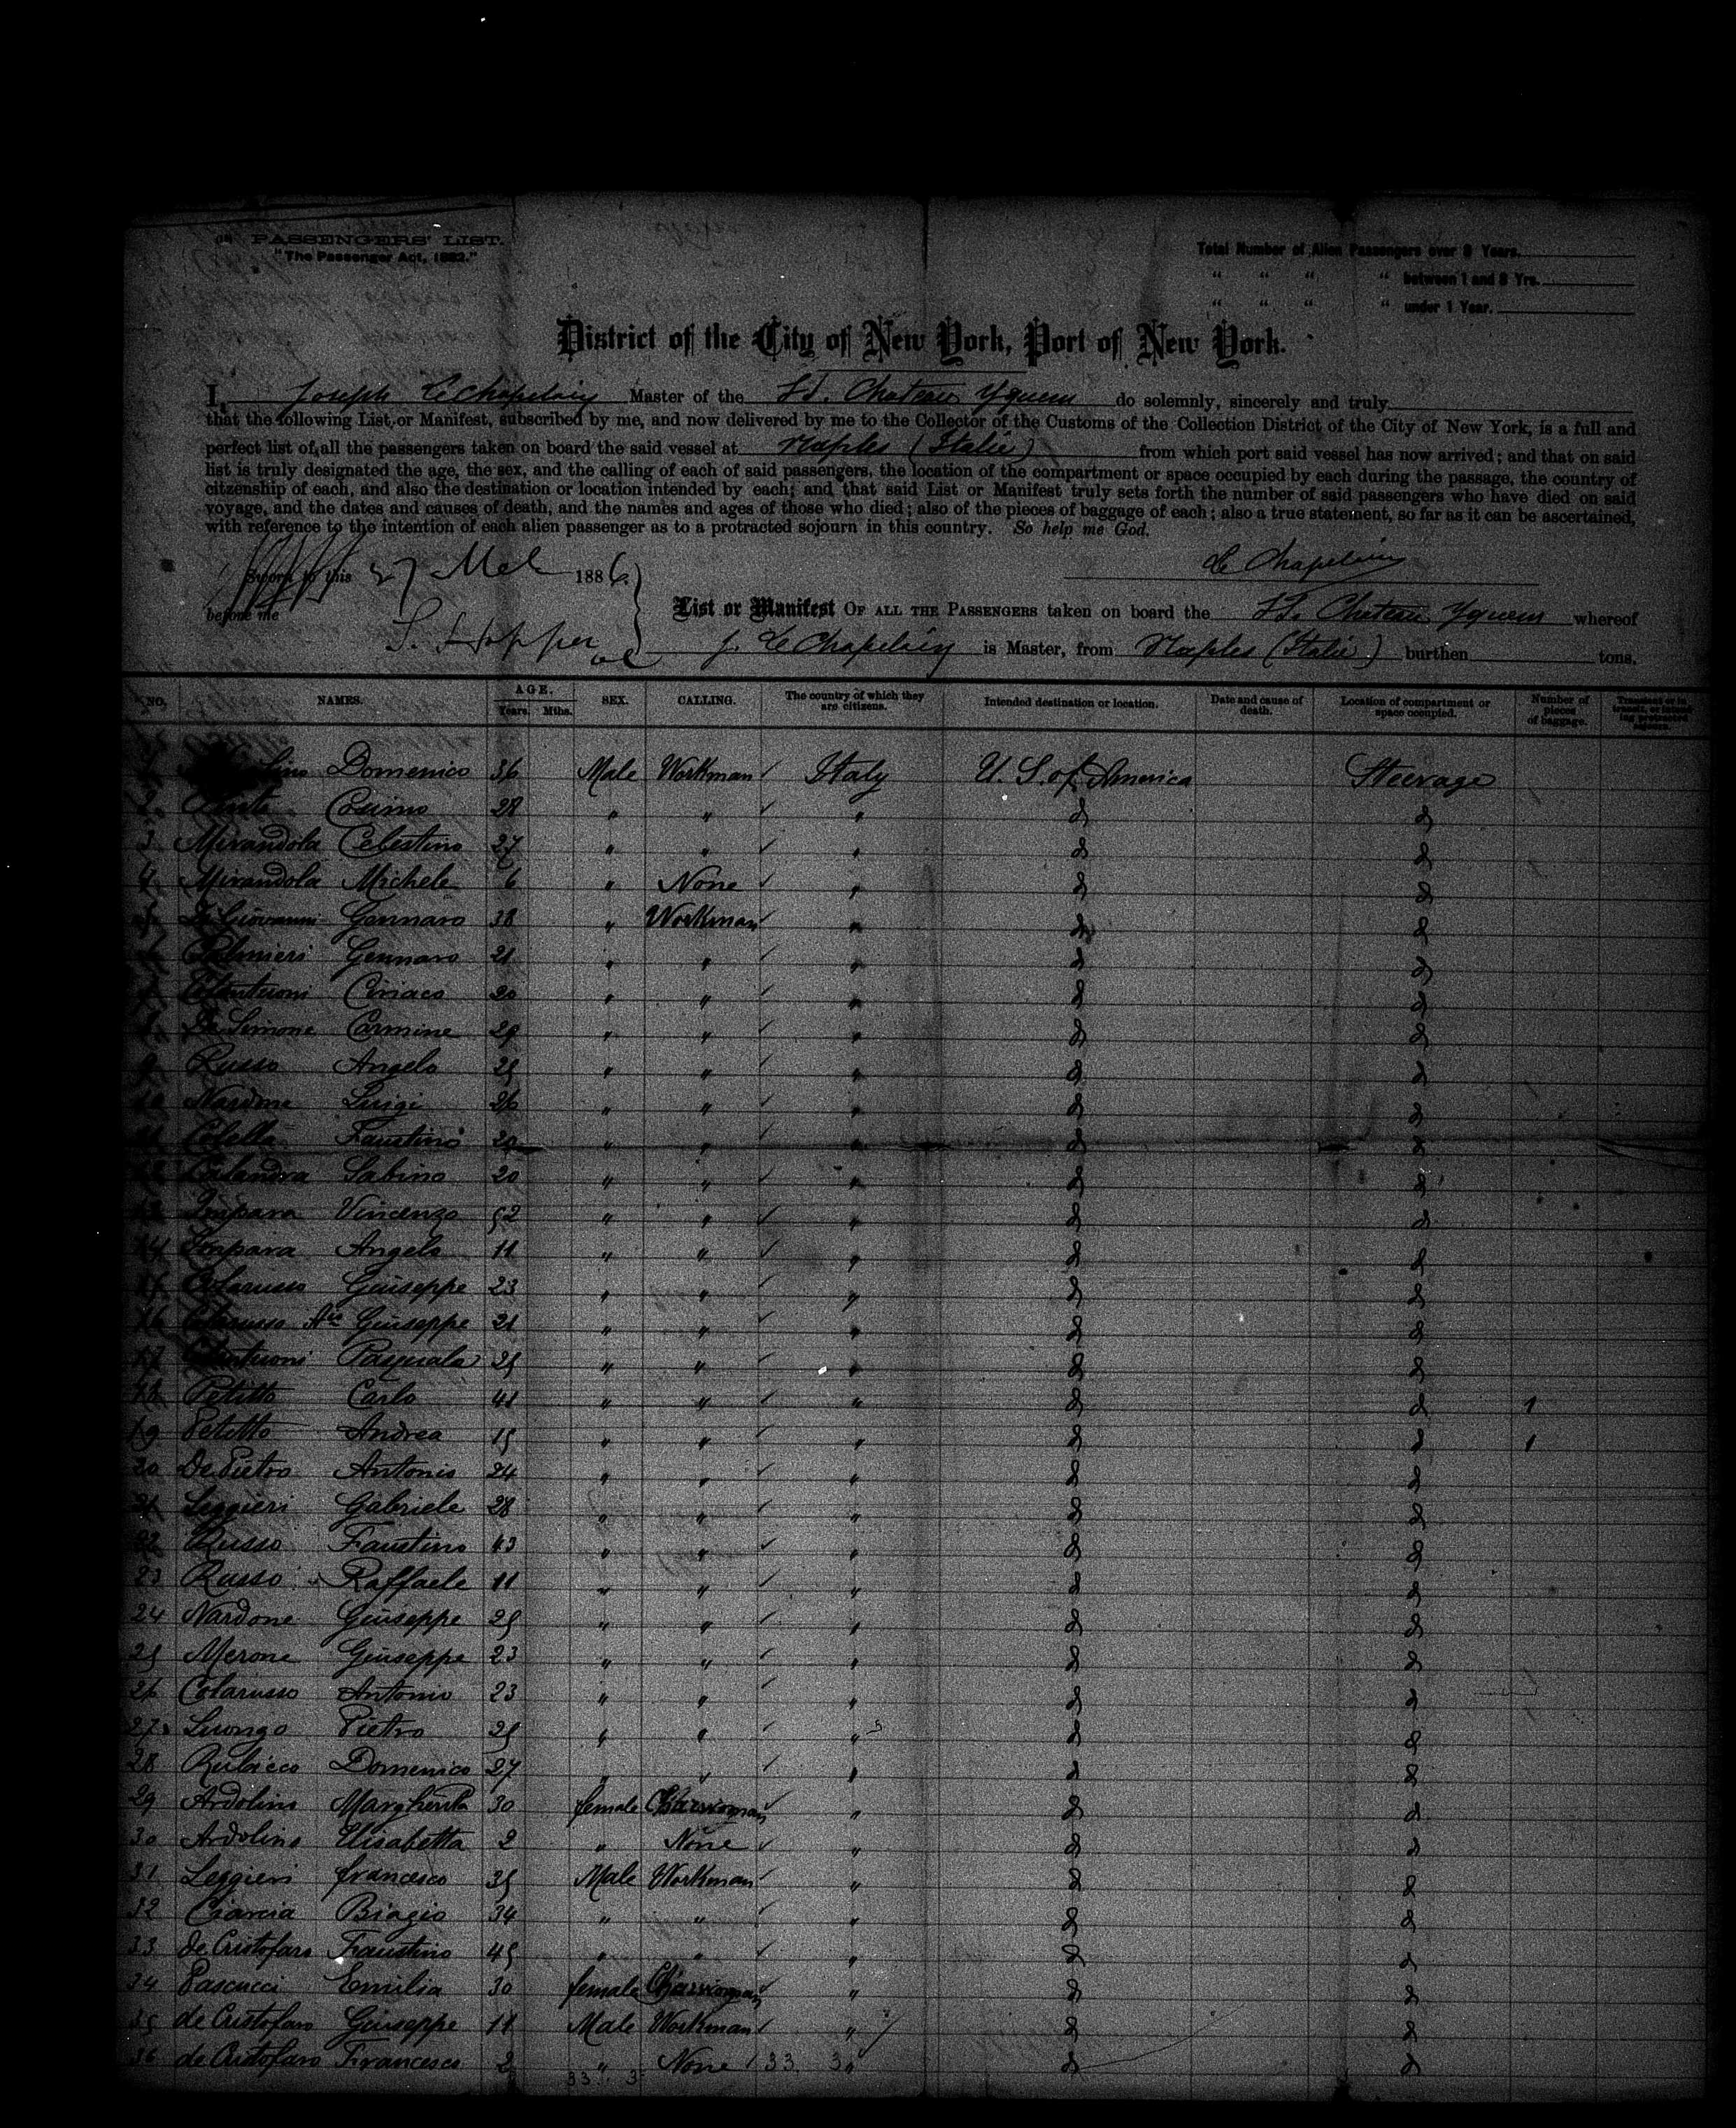 PASSENGERS' LIST.
"The Passenger Act, 1882."
Total Number of Alien Passengers over 8 Years.
" " " " between 1 and 8 Yrs.
" " " " under 1 Year.
District of the City of New York, Port of New York.
I, Joseph LeChapelain Master of the SS. Chateau Yquem do solemnly, sincerely and truly
that the following List or Manifest, subscribed by me, and now delivered by me to the Collector of the Customs of the Collection District of the City of New York, is a full and
perfect list of all the passengers taken on board the said vessel at Naples (Italie) from which port said vessel has now arrived; and that on said
list is truly designated the age, the sex, and the calling of each of said passengers, the location of the compartment or space occupied by each during the passage, the country of
citzenship of each, and also the destination or location intended by each; and that said List or Manifest truly sets forth the number of said passengers who have died on said
voyage, and the dates and causes of death, and the names and ages of those who died; also of the pieces of baggage of each; also a true statement, so far as it can be ascertained,
with reference to the intention of each alien passenger as to a protracted sojourn in this country. So help me God.
Le Chapelain
Sworn to this 27 Mch 1886
before me
S. Hopper
List or Manifest OF ALL THE PASSENGERS taken on board the SS. Chateau Yquem whereof
J. LeChapelain is Master, from Naples (Italie) burthen tons.
NO. NAMES. AGE. Years. Mths. SEX. CALLING. The country of which they are citizens. Intended destination or location. Date and cause of death. Location of compartment or space occupied. Number of pieces of baggage.
Domenico 36 Male Workman Italy U. S. of America Steerage
2 Cosimo 28 " " " d d
3 Mirandola Celestino 27 " " " d d
4 Mirandola Michele 6 " None " d d
5 Di Giovanni Gennaro 38 " Workman " d d
6 Palmieri Gennaro 21 " " " d d
7 Ciriaco 20 " " " d d
8 De Simone Carmine 29 " " " d d
9 Russo Angelo 25 " " " d d
10 Nardone Luigi 26 " " " d d
11 Colella Faustino " " " d d
12 Sabino 20 " " " d d
13 Impara Vincenzo 52 " " " d d
14 Impara Angelo 11 " " " d d
15 Colarusso Giuseppe 23 " " " d d
16 Colarusso Giuseppe 21 " " " d d
17 Pasquale 25 " " " d d
18 Petitto Carlo 41 " " " d d 1
19 Petitto Andrea 15 " " " d d 1
20 De Pietro Antonio 24 " " " d d
21 Leggieri Gabriele 28 " " " d d
22 Russo Faustino 43 " " " d d
23 Russo Raffaele 11 " " " d d
24 Nardone Giuseppe 25 " " " d d
25 Merone Giuseppe 23 " " " d d
26 Colarusso Antonio 23 " " " d d
27 Luongo Pietro 25 " " " d d
28 Rubicco Domenico 27 " " " d d
29 Ardolino Margherita 30 female Charwoman " d d
30 Ardolino Elisabetta 2 " None " d d
31 Leggieri francesco 35 Male Workman " d d
32 Ciarcia Biagio 34 " " " d d
33 de Cristofaro Faustino 45 " " " d d
34 Pascucci Emilia 30 female Charwoman " d d
35 de Cristofaro Giuseppe 11 Male Workman " d d
36 de Cristofaro Francesco 2 " None 33 3 " d d
33 3